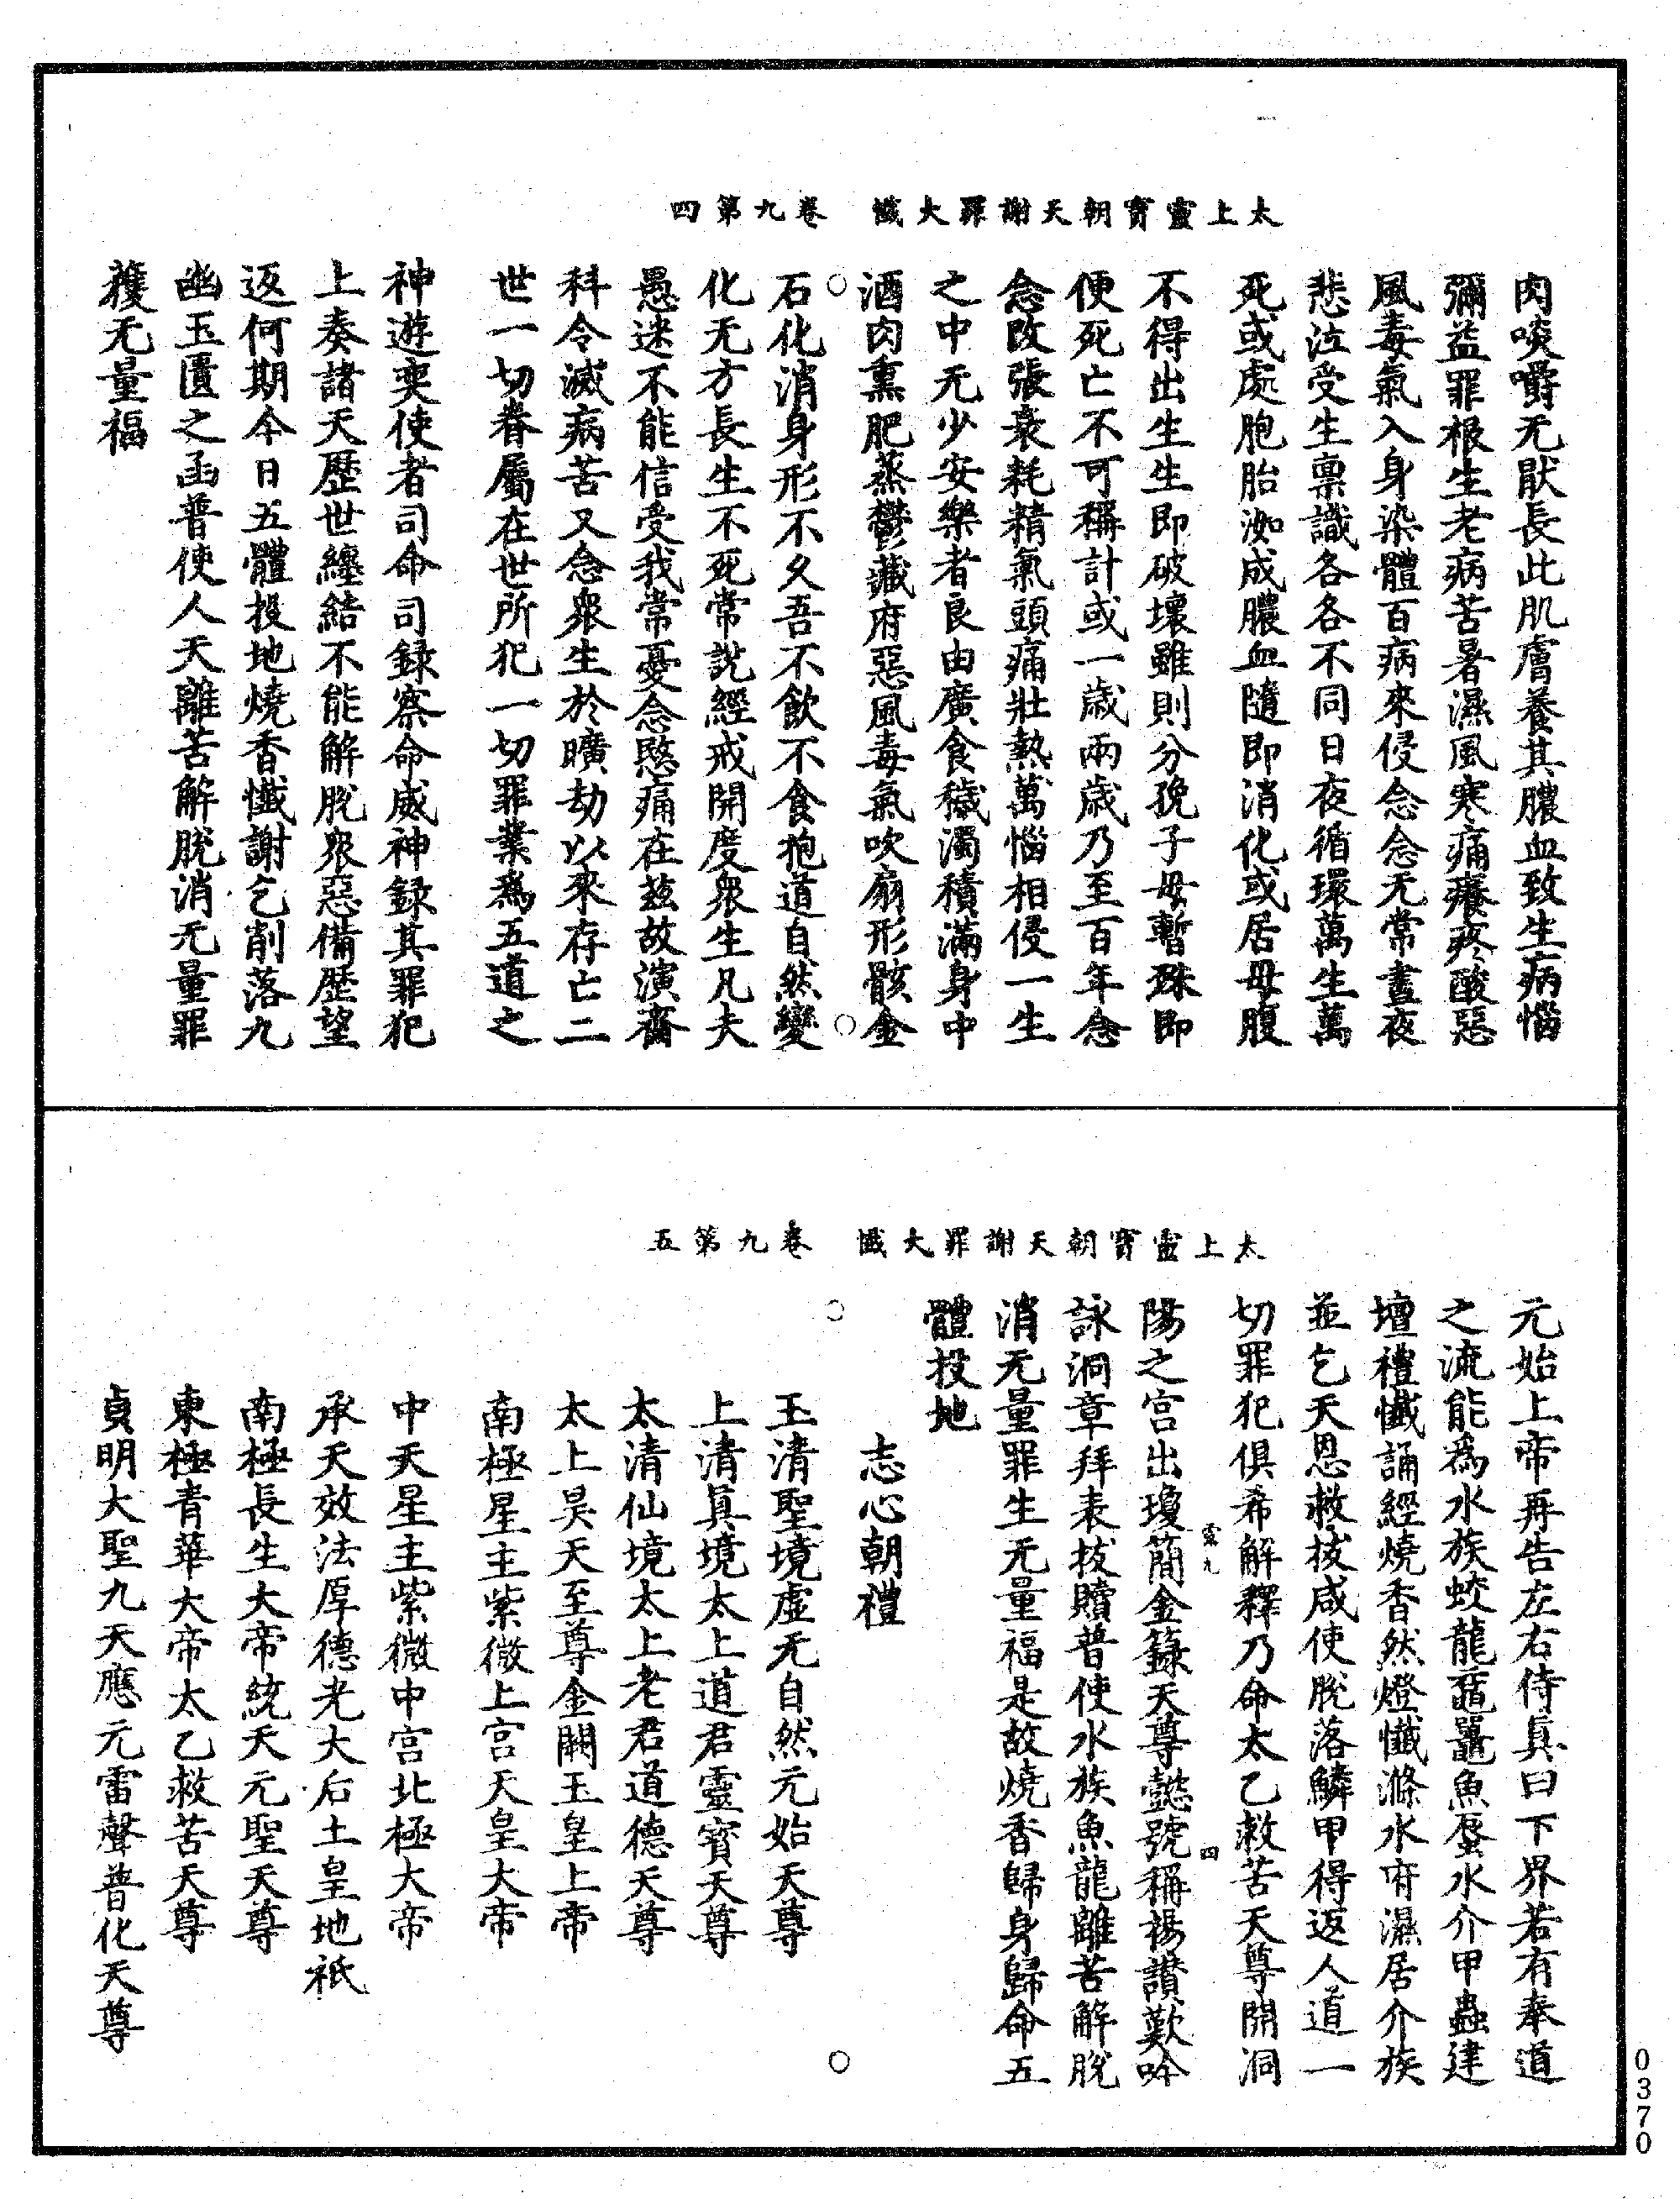 太上靈寳朝天謝罪大懺　卷九第四
肉啖嚼无猒長此肌膚養其膿血致生病惱
彌益罪根生老病苦暑濕風寒痛癢疼酸惡
風毒氣入身染體百病來侵念念无常晝夜
悲泣受生禀識各各不同日夜循環萬生萬
死或處胞胎洳成膿血隨即消化或居母腹
不得出生生即破壞雖則分娩子母暫殊即
便死亡不可稱計或一歲兩歲乃至百年念
念改張衰耗精氣頭痛壯熱萬惱相侵一生
之中无少安樂者良由廣食穢濁積滿身中
酒肉熏肥蒸鬱藏府惡風毒氣吹扇形骸金
石化消身形不久吾不飲不食抱道自然變
化无方長生不死常說經戒開度衆生凡夫
愚迷不能信受我常憂念愍痛在茲故演齋
科令滅病苦又念衆生於曠劫以來存亡二
世一切眷屬在世所犯一切罪業爲五道之
神遊奕使者司命司録察命威神録其罪犯
上奏諸天歷世纏結不能解脫衆惡備歷望
返何期今日五體投地燒香懺謝乞削落九
幽玉匱之函普使人天離苦解脫消无量罪
獲无量福
太上靈寳朝天謝罪大懺　卷九第五
元始上帝再告左右侍眞曰下界若有奉道
之流能爲水族蛟龍黿鼉魚蜃水介甲蟲建
壇禮懺誦經燒香然燈懺滌水府濕居介族
並乞天恩救拔咸使脫落鱗甲得返人道一
切罪犯俱希解釋乃命太乙救苦天尊開洞
陽之宫出瓊簡金籙天尊懿號稱揚讃歎吟
詠洞章拜表拔贖普使水族魚龍離苦解脫
消无量罪生无量福是故燒香歸身歸命五
體投地
志心朝禮
玉清聖境虛无自然元始天尊
上清眞境太上道君靈寳天尊
太清仙境太上老君道德天尊
太上昊天至尊金闕玉皇上帝
南極星主紫微上宫天皇大帝
中天星主紫微中宫北極大帝
承天效法厚德光大后土皇地祇
南極長生大帝統天元聖天尊
東極青華大帝太乙救苦天尊
貞明大聖九天應元雷聲普化天尊
四
0370